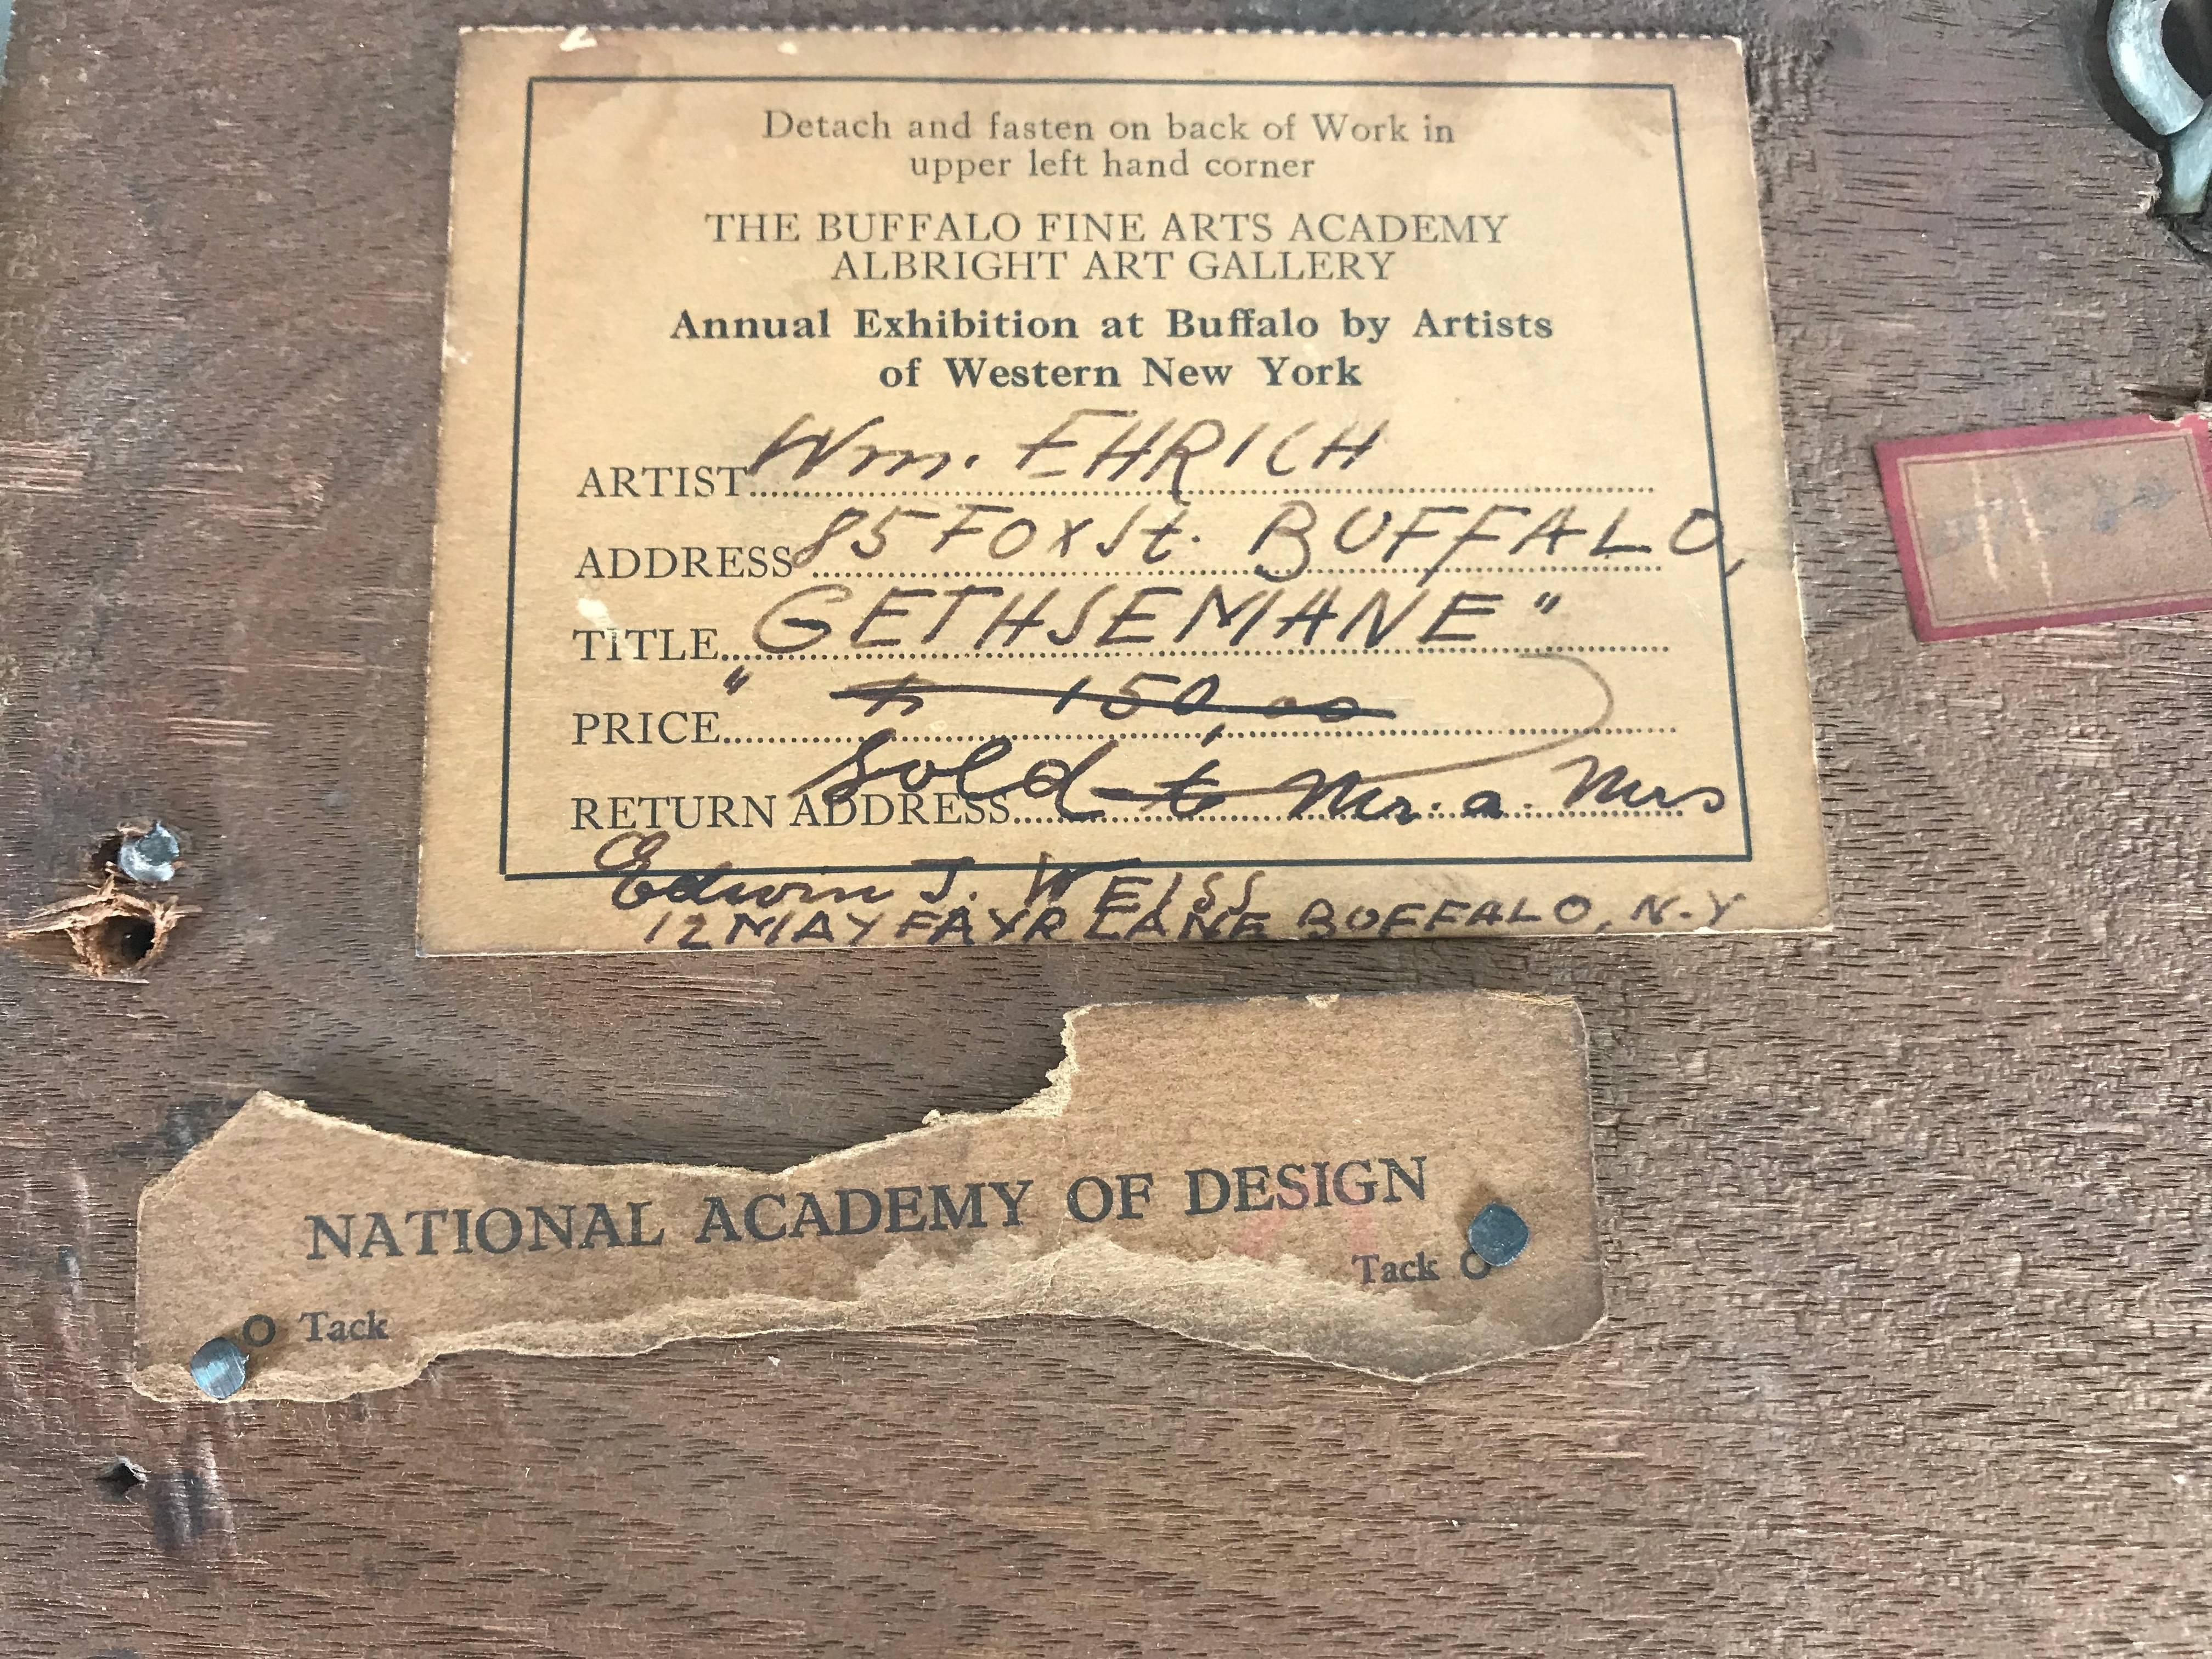 Detach and fasten on back of Work in
upper left hand corner
THE BUFFALO FINE ARTS ACADEMY
ALBRIGHT ART GALLERY
Annual Exhibition at Buffalo by Artists
of Western New York
ARTIST Wm. EHRICH
ADDRESS 85 FOX St. BUFFALO,
TITLE "GETHSEMANE"
PRICE 150,00
RETURN ADDRESS Sold to Mr. a. Mrs
Edwin J. WEISS
12 MAYFAYR LANE BUFFALO, N.Y
NATIONAL ACADEMY OF DESIGN
Tack
Tack